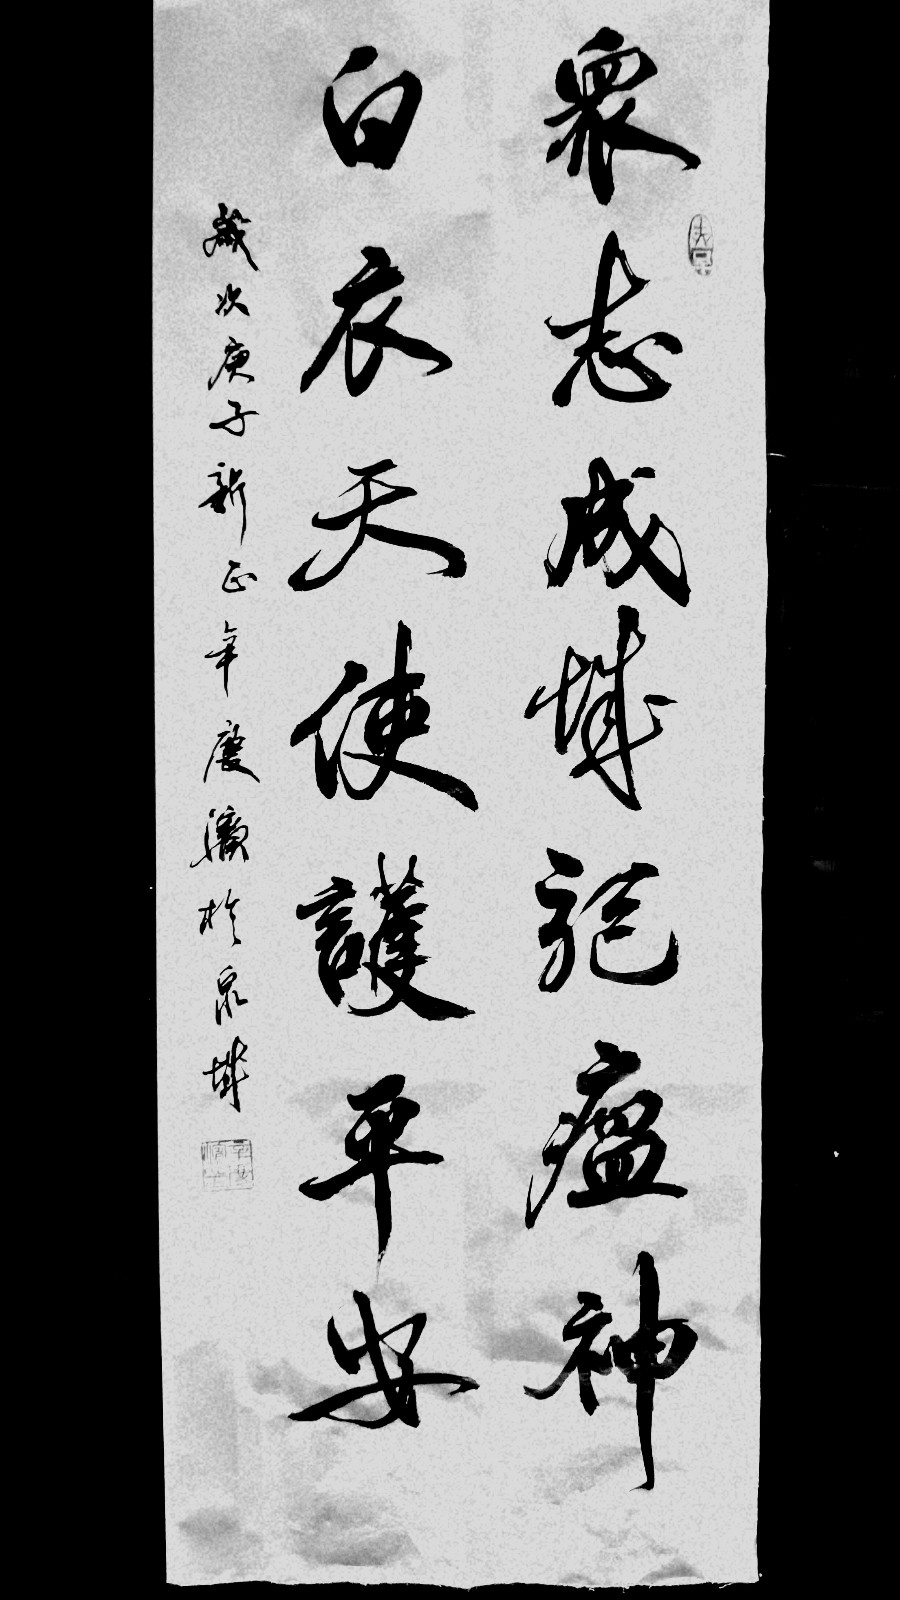 眾志成城驱瘟神
白衣天使護平安
歲次庚子新正辛慶於泉城